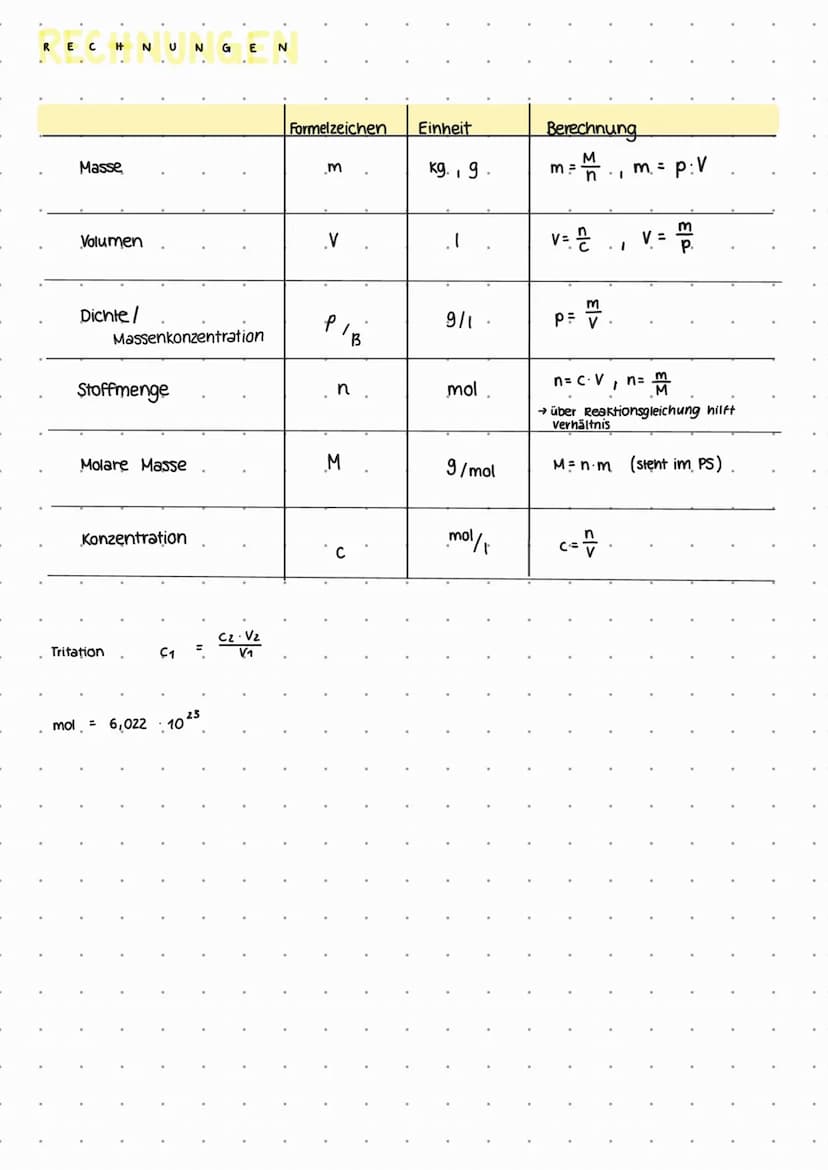 RECHNUNGEN
Formelzeichen Einheit Berechnung
Masse m kg, g m = M/n , m = p·V
Volumen V l V = n/c , V = m/p
Dichte/ Massenkonzentration ρ/β g/l p = m/V
Stoffmenge n mol n = c·V , n = m/M
→ über Reaktionsgleichung hilft
verhältnis
Molare Masse M g/mol M = n·m (steht im PS)
Konzentration c mol/l c = n/V
Tritation c1 = c2·V2/V1
mol = 6,022 · 10^23